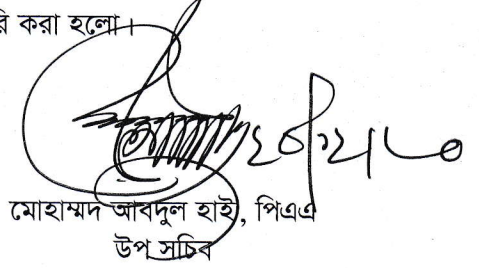 রি করা হলো।
মোহাম্মদ আবদুল হাই, পিএএ
উপ সচিব